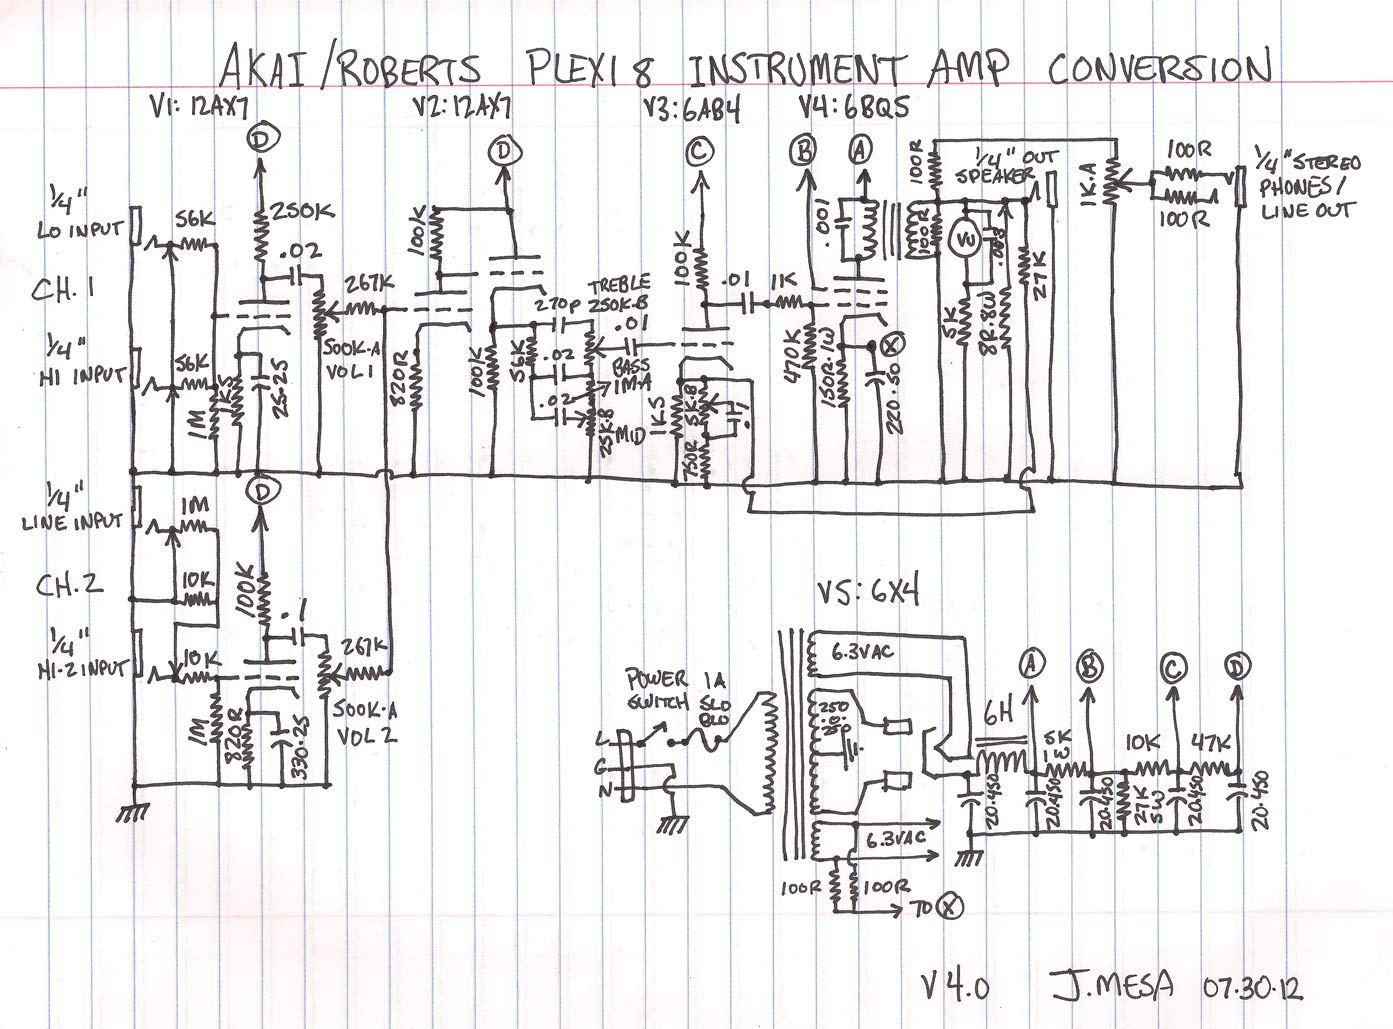 AKAI/ROBERTS PLEXI 8 INSTRUMENT AMP CONVERSION
V1: 12AX7
V2: 12AX7
V3: 6AB4
V4: 6BQ5
D
D
C
B
A
1/4"
LO INPUT
56K
250K
.02
CH. 1
267K
1/4"
HI INPUT
56K
1M
1K5
25.25
500K-A
VOL 1
100K
820R
100K
270P
TREBLE
250K-B
.01
56K
.02
BASS
1M-A
.02
25K-B
MID
100K
.01
1K
1K5
5K-B
.1
750R
470K
150R.1W
X
220.50
.001
100R
100R
1/4" OUT
SPEAKER
VU
5K
8R.8W
27K
1K.A
100R
100R
1/4" STEREO
PHONES/
LINE OUT
1/4"
LINE INPUT
1M
D
CH. 2
10K
100K
.1
1/4"
HI-2 INPUT
10K
267K
1M
820R
330.25
500K-A
VOL 2
V5: 6X4
POWER
SWITCH
1A
SLO
BLO
L
G
N
6.3VAC
250
.0.
250
6.3VAC
100R
100R
TO X
6H
A
B
C
D
10K
47K
20.450
20.450
20.450
27K
5W
20.450
20.450
V 4.0 J. MESA 07.30.12